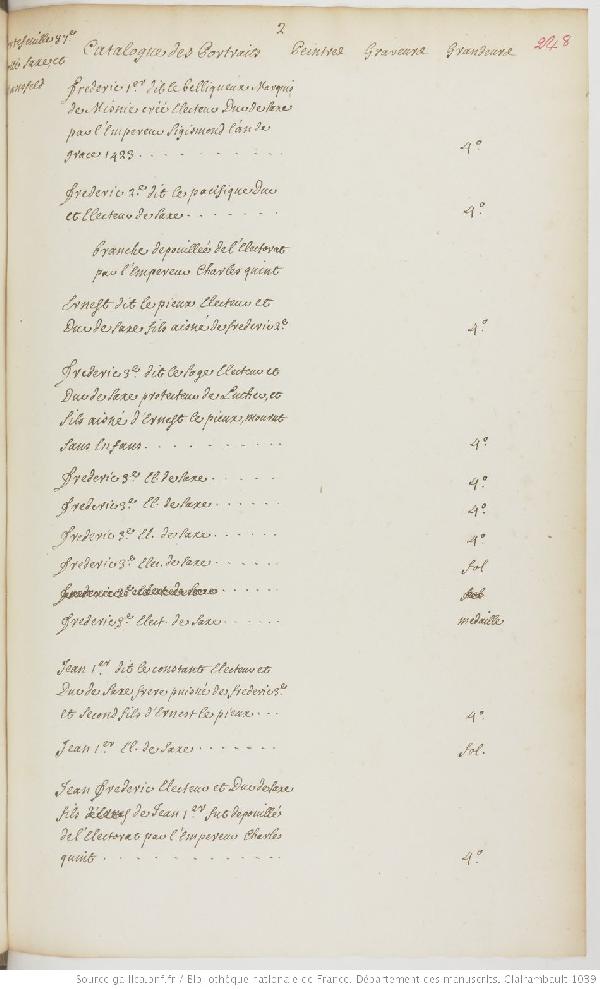 2
portefeuille 37e
Saxe, et
Mansfeld
Catalogue des Portraits Peintre Graveure Grandeure 228
frederic 1er dit le belliqueux Marquis
de Misnie créé Electeur Duc de Saxe
par l'Empereur Sigismond l'an de
grace 1423 4°
frederic 2e dit le pacifique Duc
et Electeur de Saxe 4°
branche depouillée de l'Electorat
par l'Empereur Charles quint
Ernest dit le pieux Electeur et
Duc de Saxe fils aisné de frederic 2e 4°
frederic 3e dit le sage Electeur et
Duc de Saxe protecteur de Luther, et
fils aisné d'Ernest le pieux, mourut
sans Enfans 4°
frederic 3e El. de Saxe 4°
frederic 3e El. de Saxe 4°
frederic 3e El. de Saxe 4°
frederic 3e Elec. de Saxe fol.
frederic 3e Elect. de Saxe fol
frederic 3e Elect. de Saxe medaille
Jean 1er dit le constant Electeur et
Duc de Saxe frere puisné de frederic 3e
et Second fils d'Ernest le pieux 4°
Jean 1er El. de Saxe fol.
Jean frederic Electeur et Duc de Saxe
fils de Jean 1er fut depouillé
de l'Electorat par l'Empereur Charles
quint 4°
Source gallica.bnf.fr / Bibliothèque nationale de France. Département des manuscrits. Clairambault 1039